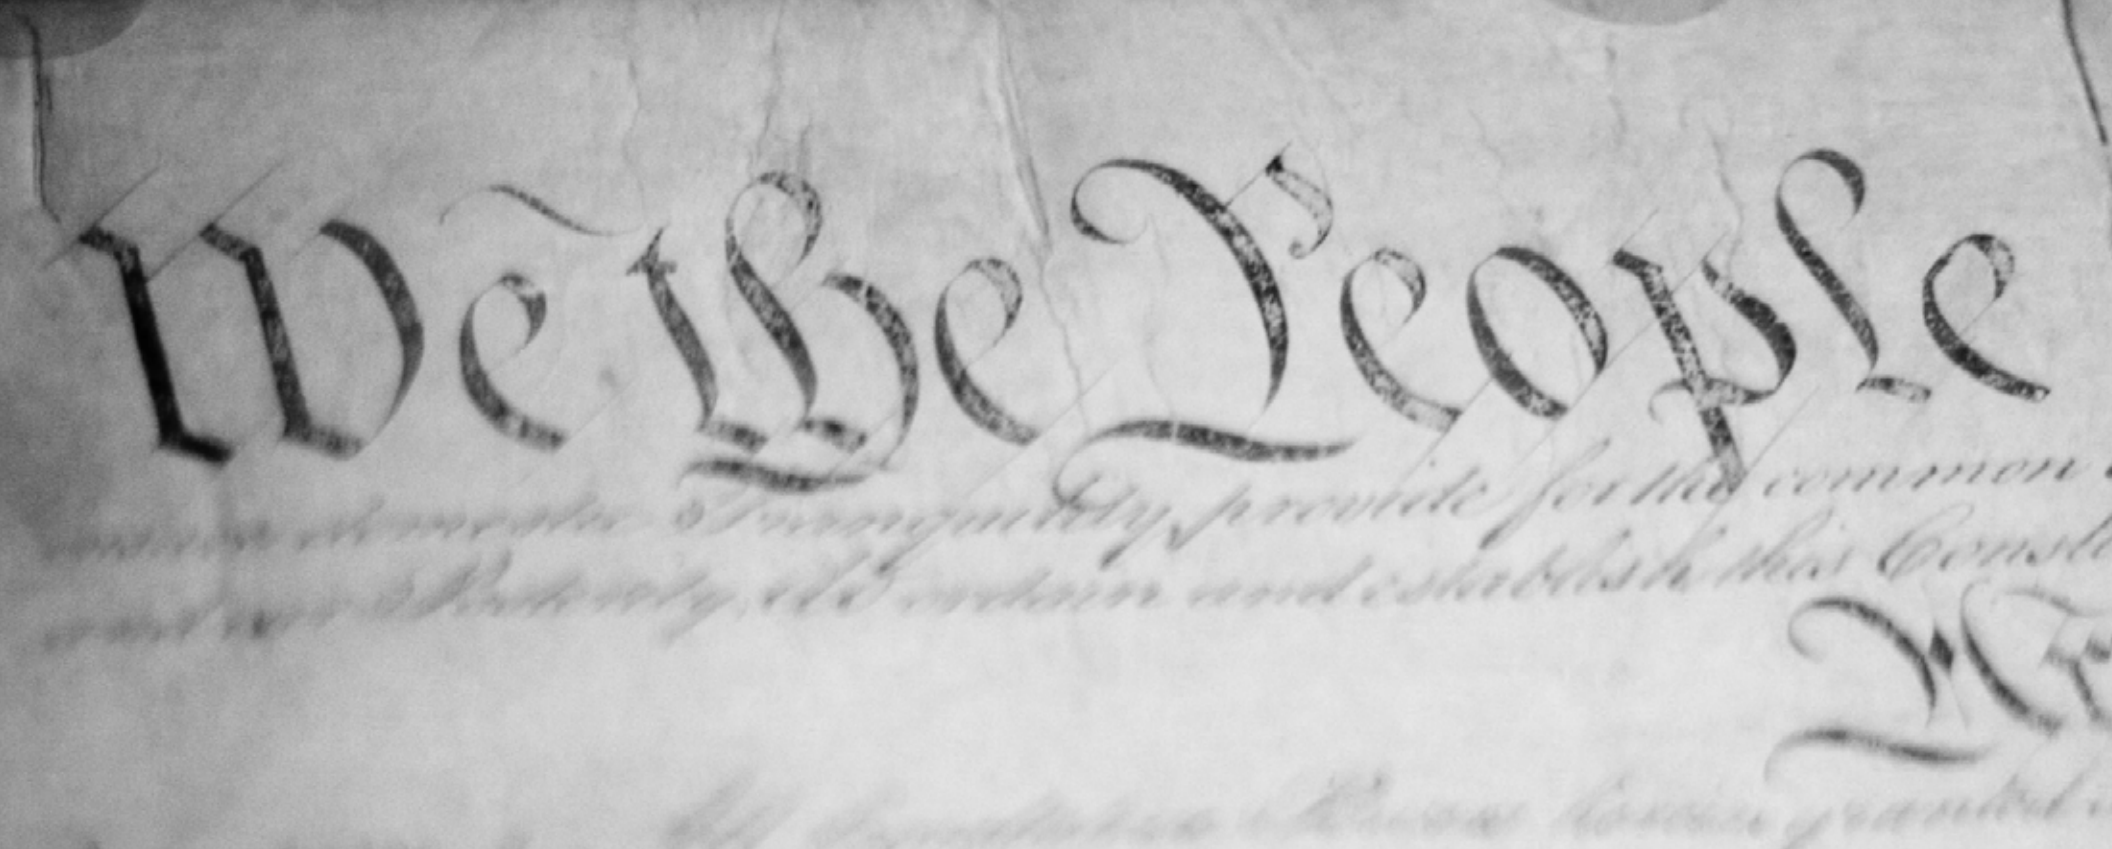 We the People
insure domestic Tranquility, provide for the common
and our Posterity, do ordain and establish this Consti
Art
All legislative Powers herein granted